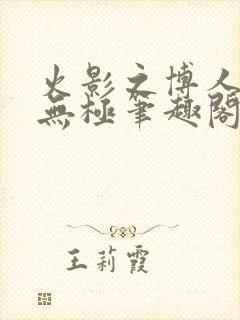 火影之博人
無極筆趣閣
王莉霞